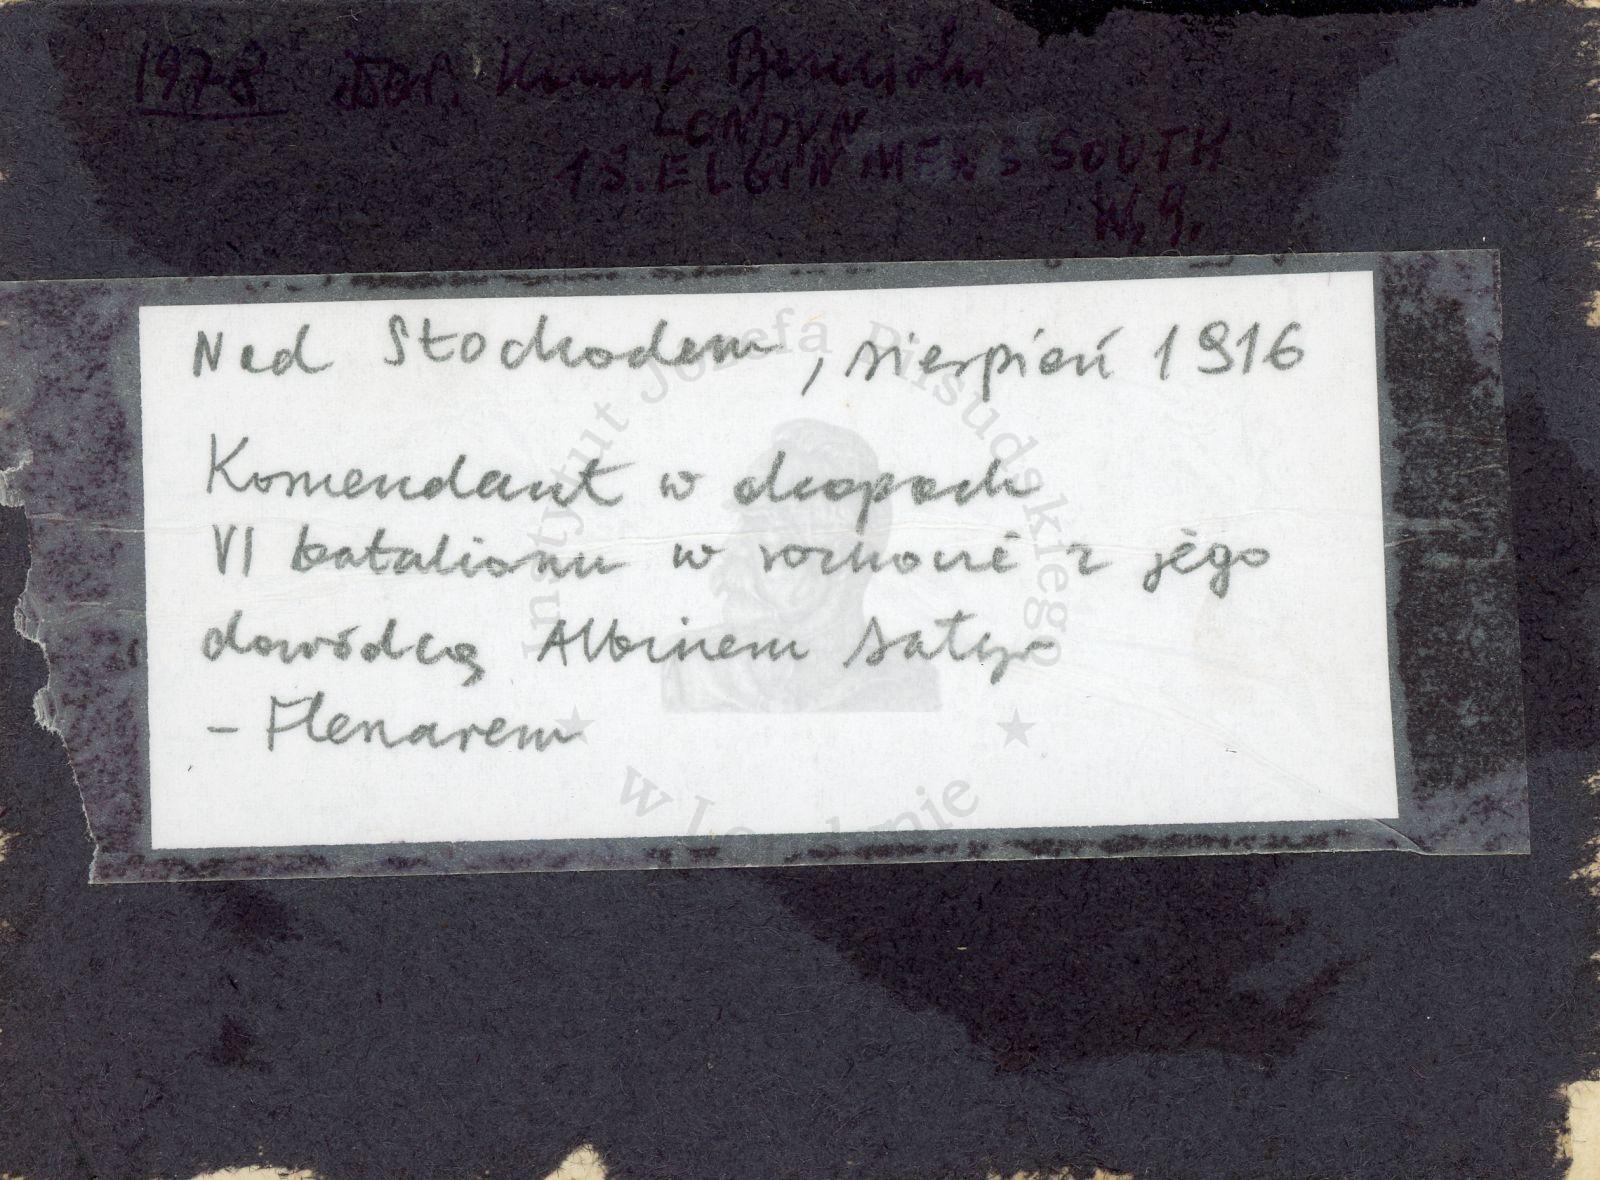 1978 dar.
LONDYN
15. ELGIN MEWS SOUTH
W. 9.
Nad Stochodem, sierpień 1916
Komendant w okopach
VI batalionu w rozmowie z jego
dowódcą Albinem Satyr
- Flenarem
Instytut Józefa Piłsudskiego
w Londynie